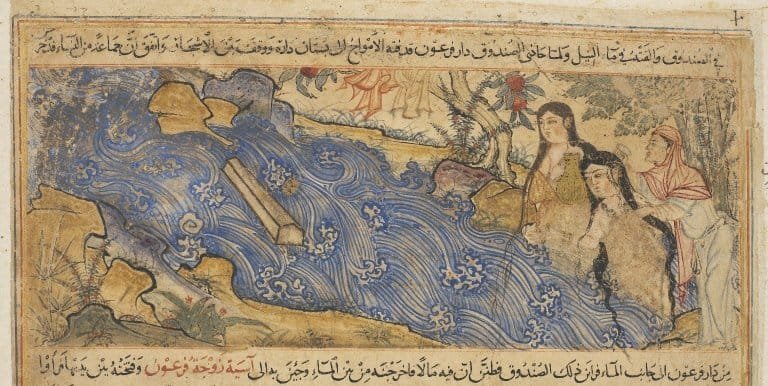 في الصندوق والقته في ماء النيل ولما حاذى الصندوق دار فرعون قدفه الأمواج الى بستان داره ووقف بين الأشجار واتفق أن جماعة من النساء
من دار فرعون الى جانب الماء فراين ذلك الصندوق فظنن ان فيه مالا فاخرجنه من بين الماء وجئن به الى آسية زوجة فرعون وفتحنه بين يديها